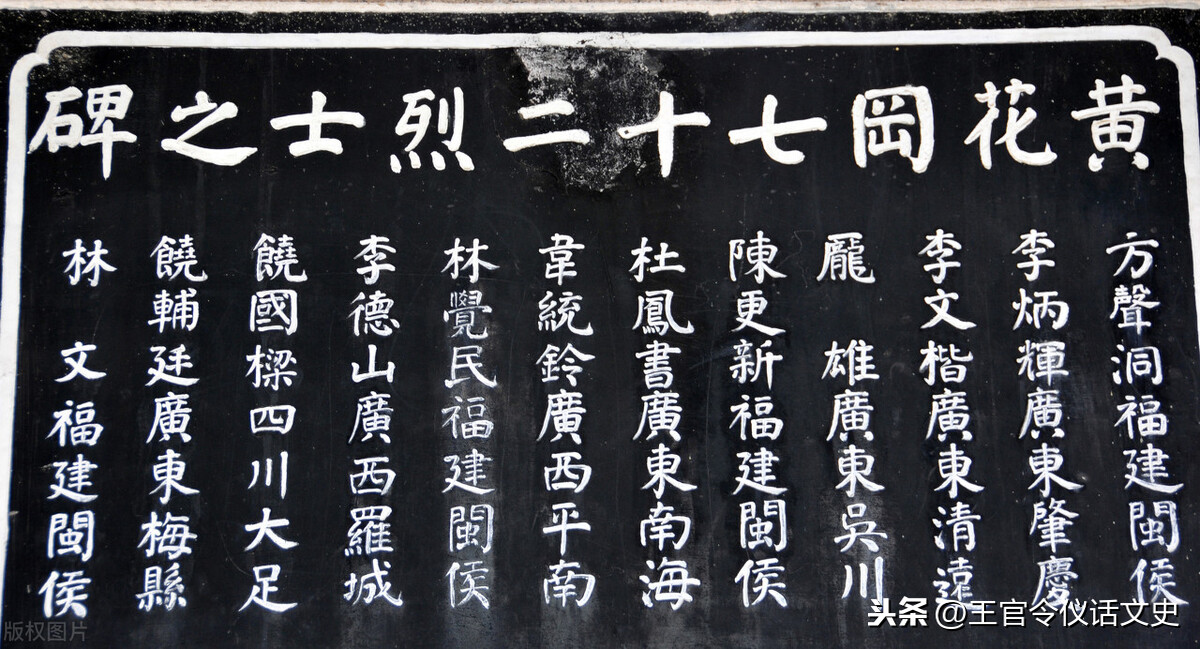 黄花岡七十二烈士之碑
方聲洞福建閩侯
李炳輝廣東肇慶
李文楷廣東清遠
龎雄廣東吳川
陳更新福建閩侯
杜鳳書廣東南海
韋統鈴廣西平南
林覺民福建閩侯
李德山廣西羅城
饒國樑四川大足
饒輔廷廣東梅縣
林文福建閩侯
头条@王官令仪话文史
版权图片